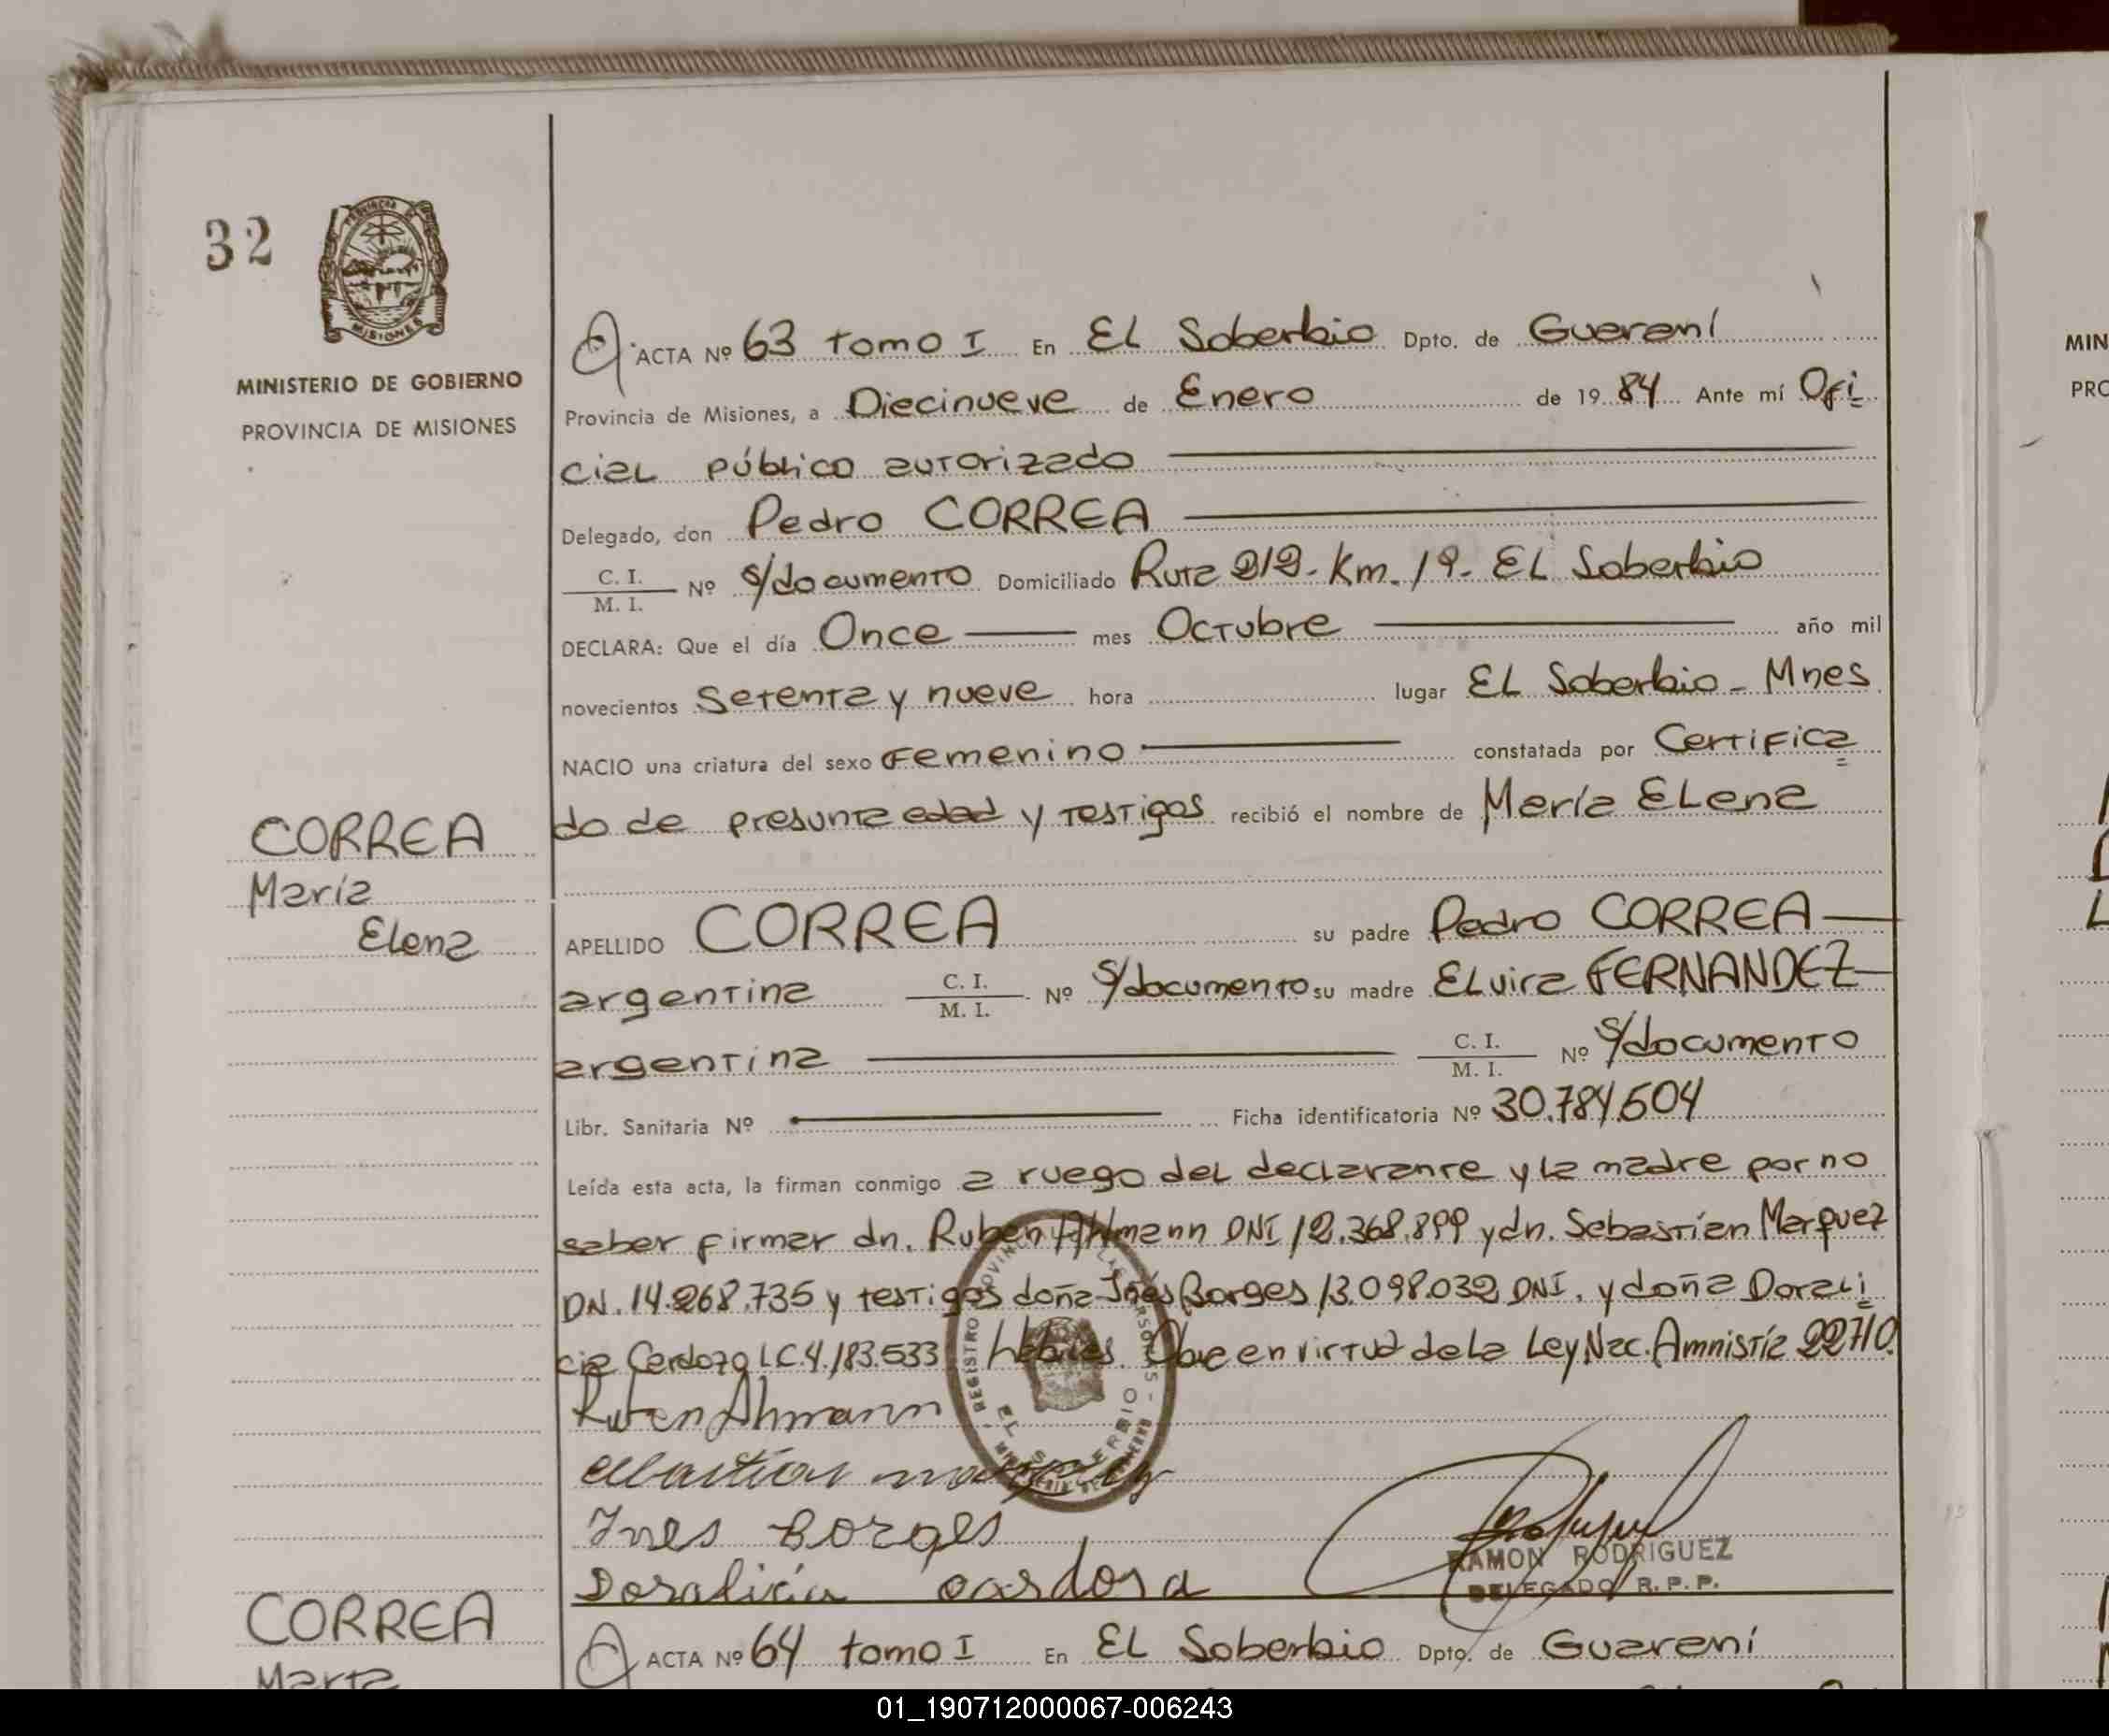 32
PROVINCIA DE
MISIONES
MINISTERIO DE GOBIERNO
PROVINCIA DE MISIONES
ACTA Nº 63 tomo I En El Soberbio Dpto. de Guaraní
Provincia de Misiones, a Diecinueve de Enero de 19 84 Ante mí Ofi
cial público autorizado
Delegado, don Pedro CORREA
C. I.
M. I. Nº s/documento Domiciliado Ruta 212. Km. 19. El Soberbio
DECLARA: Que el día Once mes Octubre año mil
novecientos Setenta y nueve hora lugar El Soberbio - Mnes
NACIO una criatura del sexo Femenino constatada por Certifica
do de presunta edad y testigos recibió el nombre de María Elena
CORREA
María
Elena
APELLIDO CORREA su padre Pedro CORREA
argentina C. I.
M. I. Nº s/documento su madre Elvira FERNANDEZ
argentina C. I.
M. I. Nº s/documento
Libr. Sanitaria Nº Ficha identificatoria Nº 30.784.504
Leída esta acta, la firman conmigo a ruego del declarante y la madre por no
saber firmar dn. Ruben Ahlmann DNI 12.368.899 y dn. Sebastián Marquez
DN. 14.268.735 y testigos doña Inés Borges 13.098.032 DNI. y doña Dorali
cia Cardozo LC. 4.183.533 Hábiles. Obre en virtud de la Ley Nac. Amnistía 22710.
Ruben Ahmann
Ines Borges
Doralicia cardosa
REGISTRO PROVINCIAL DE LAS PERSONAS -
EL SOBERBIO
RAMON RODRIGUEZ
DELEGADO R. P. P.
CORREA
Marta
ACTA Nº 64 tomo I En El Soberbio Dpto. de Guaraní
MIN
PRO
01_190712000067-006243